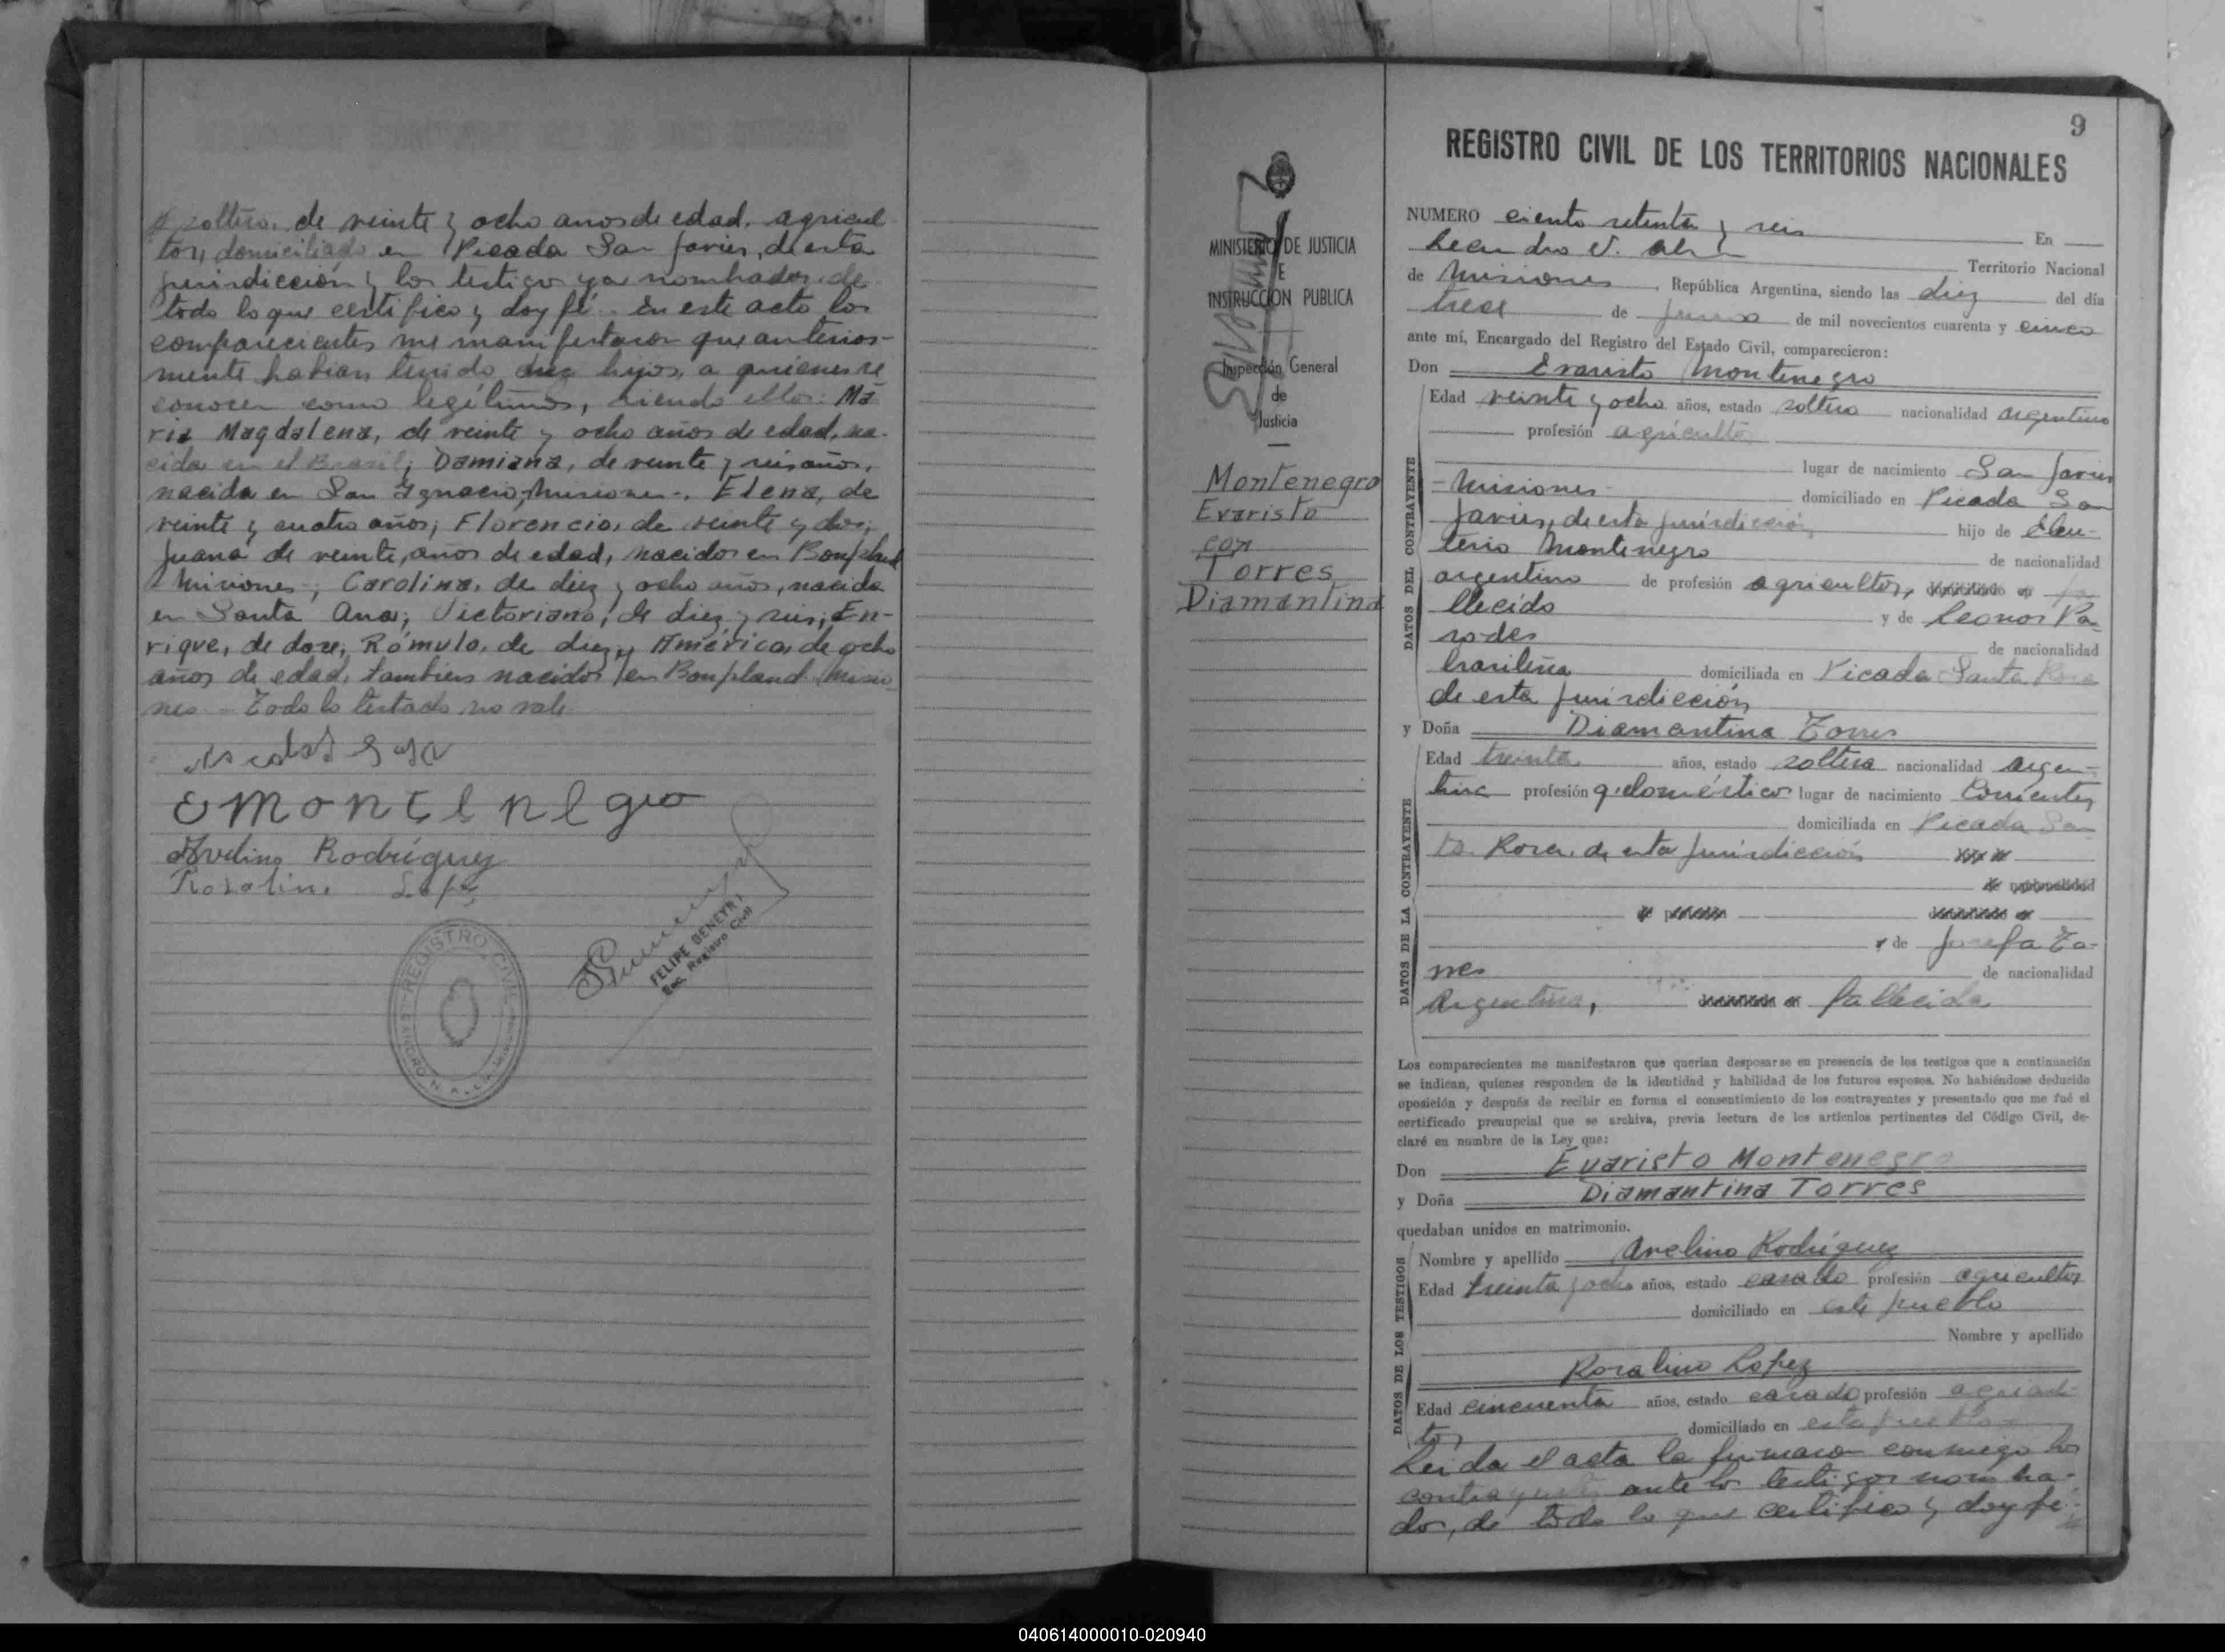 soltero, de veinte y ocho años de edad, agricul-
tor, domiciliado en Picada San Javier, de esta
jurisdicción y los testigos ya nombrados, de
todo lo que certifico y doy fé. En este acto los
comparecientes me manifestaron que anterior-
mente habian tenido diez hijos, a quienes re
conocen como legítimos, siendo ellos: Ma
ria Magdalena, de veinte y ocho años de edad, na-
cida en el Brasil; Damiana, de veinte y seis años,
nacida en San Ignacio, Misiones-. Elena, de
veinte y cuatro años; Florencio, de veinte y dos;
Juana de veinte, años de edad, nacidos en Bonpland
Misiones; Carolina, de diez y ocho años, nacida
en Santa Ana; Victoriano, de diez y seis; En-
rique, de doce; Rómulo, de diez y América, de ocho
años de edad, tambien nacidos en Bonpland Misio
nes - Todo lo testado no vale
EMontenegro
Avelino Rodríguez
Rosalino Lopez
REGISTRO CIVIL
FELIPE GENEYRI
Enc. Registro Civil
9
REGISTRO CIVIL DE LOS TERRITORIOS NACIONALES
MINISTERIO DE JUSTICIA
E
INSTRUCCION PUBLICA
Inspección General
de
Justicia
Montenegro
Evaristo
con
Torres
Diamantina
NUMERO ciento setenta y seis En
Leandro N. Alem Territorio Nacional
de Misiones, República Argentina, siendo las diez del día
trece de Junio de mil novecientos cuarenta y cinco
ante mí, Encargado del Registro del Estado Civil, comparecieron:
Don Evaristo Montenegro
DATOS DEL CONTRAYENTE
Edad veinte y ocho años, estado soltero nacionalidad argentino
profesión agricultor
lugar de nacimiento San Javier
- Misiones - domiciliado en Picada San
Javier, de esta jurisdicción hijo de Eleu-
terio Montenegro de nacionalidad
argentino de profesión agricultor, fa
llecido y de Leonor Pa-
redes de nacionalidad
brasileña domiciliada en Picada Santa Rosa
de esta jurisdicción
y Doña Diamantina Torres
DATOS DE LA CONTRAYENTE
Edad treinta años, estado soltera nacionalidad argen-
tina profesión q. domésticos lugar de nacimiento Corrientes
domiciliada en Picada San
ta Rosa, de esta jurisdicción
y de Josefa To-
rres de nacionalidad
Argentina, fallecida
Los comparecientes me manifestaron que querían desposarse en presencia de los testigos que a continuación
se indican, quienes responden de la identidad y habilidad de los futuros esposos. No habiéndose deducido
oposición y después de recibir en forma el consentimiento de los contrayentes y presentado que me fué el
certificado prenupcial que se archiva, previa lectura de los artículos pertinentes del Código Civil, de-
claré en nombre de la Ley que:
Don Evaristo Montenegro
y Doña Diamantina Torres
quedaban unidos en matrimonio.
DATOS DE LOS TESTIGOS
Nombre y apellido Avelino Rodríguez
Edad treinta y ocho años, estado casado profesión agricultor
domiciliado en este pueblo
Nombre y apellido
Rosalino Lopez
Edad cincuenta años, estado casado profesión agricul-
tor domiciliado en este pueblo
Leida el acta la firmaron conmigo los
contrayentes ante los testigos nombra-
dos, de todo lo que certifico y doy fé.-
040614000010-020940